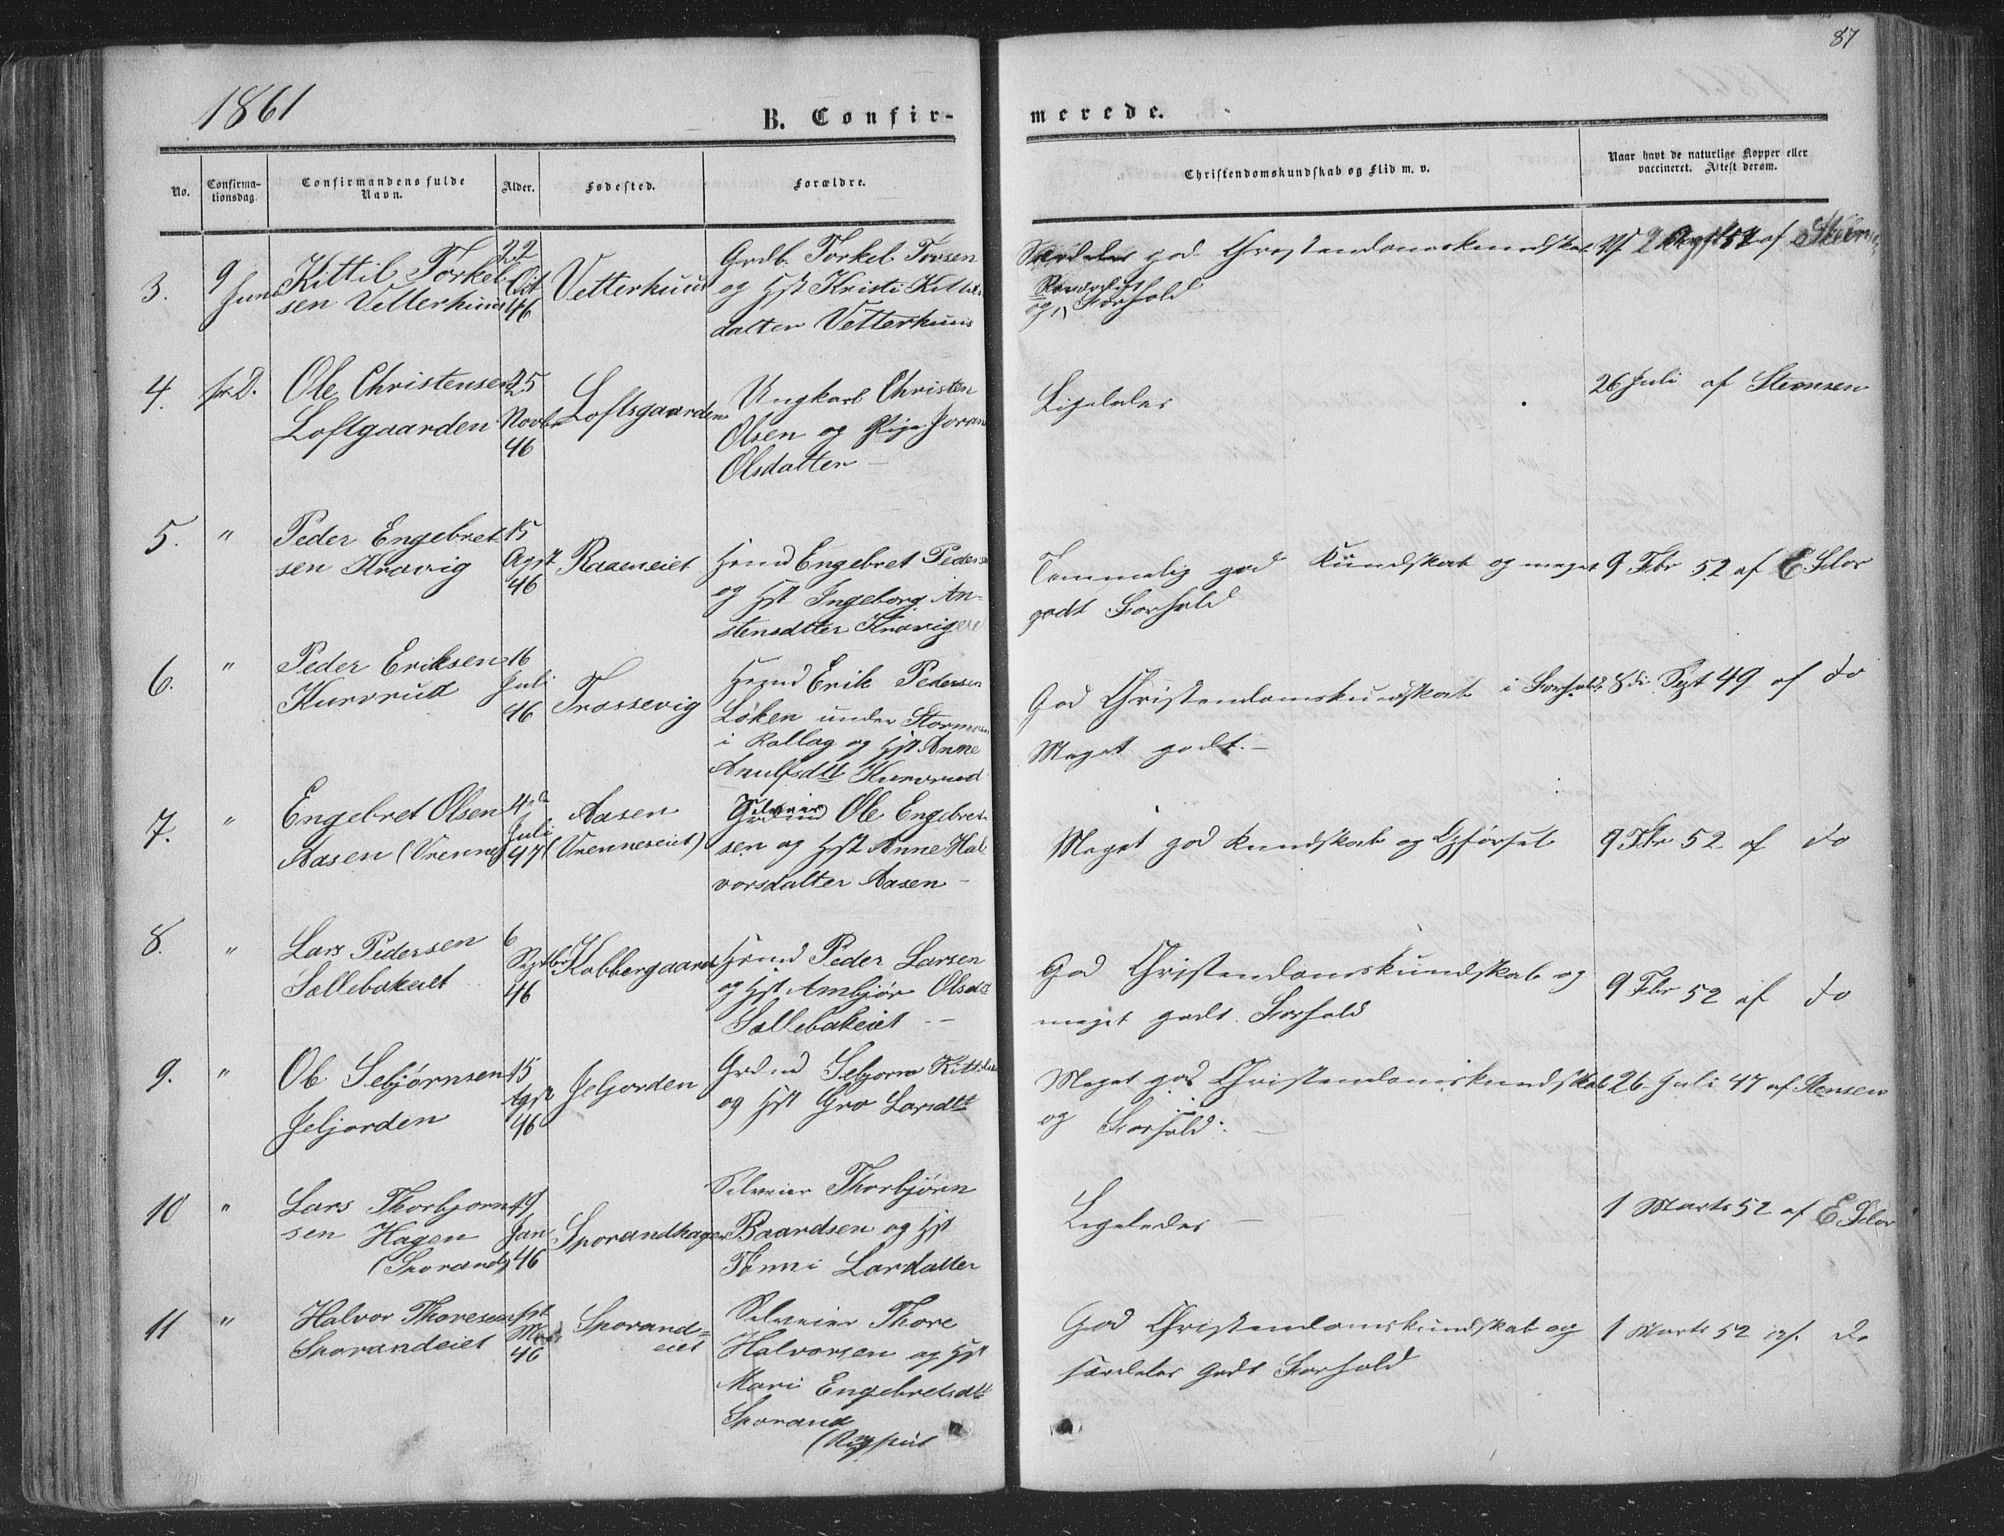 87
1861
B. Confir-
merede.
No.
Confirma-
tionsdag.
Confirmandens fulde
Navn.
Alder.
Fødested.
Forældre.
Christendomskundskab og Flid m. v.
Naar havt de naturlige Kopper eller
vaccineret. Attest derom.
3.
9
Juni
Kittil Torkel
sen Vetterhuus
22
Oct
46
Vetterhuus
Grdb. Torkel Tovsen
og Hst Kristi Kittils
datter Vetterhuus
Særdeles god Christendomskundskab
og Forhold
af
4.
Ole Christensen
Loftgaarden
25
Novbr
46
Loftsgaarden
Ungkarl Christen
Olsen og Pige Joran
Olsdatter –
Ligeledes
26 Juli af Stensen
5.
"
Peder Engebret
sen Kravig
15
Agst
46
Raaeneiet
Hsmd Engebret Peders
og Hst Ingeborg An-
stensdtter Kravig
Temmelig god Kundskab og meget
godt Forhold
9 Fbr 52 af E Flor
6.
"
Peder Eriksen
Kurvrud
16
Juli
46
Trossevig
Hsmd Erik Pedersen
Løken under
i Rollag og Hst Anne
Kurvrud
God Christendomskundskab i Forhold
Meget godt. –
8de Sept 49 af do
7.
"
Engebret Olsen
Aasen (Vrenne)
4de
Juli
47
Aasen
(Vrenneseiet)
Selveier Ole Engebret-
sen og Hst Anne Hal
vorsdatter Aasen –
Meget god Kundskab og Opførsel
9 Fbr 52 af do
8.
"
Lars Pedersen
Sollebakeiet
6
Septbr
46
Kobbergaard
Hsmd Peder Larsen
og Hst Ambjør Olsdtt
Sollebakeiet –
God Christendomskundskab og
meget godt Forhold
9 Fbr 52 af do
9.
"
Ole Sebjørnsen
Jeljorden
15
Agst
46
Jeljorden
Sebjørn Kittilsen
og Hst Gro Larsdtt
Meget god Christendomskundskab
og Forhold. –
26 Juli 47 af Stensen
10
"
Lars Thorbjørn
sen Hagen
(Sporand)
19
Jan
46
Sporandhagen
Selveier Thorbjørn
Baardsen og Hst
Larsdatter
Ligeledes –
1 Marts 52 af E Flor
11
"
Halvor Thoresen
Sporandeiet
46
Sporand=
eiet
Selveier Thore
Halvorsen og Hst
Mari Engebretsdtt
Sporand
God Christendomskundskab og
særdeles godt Forhold
1 Marts 52 af do